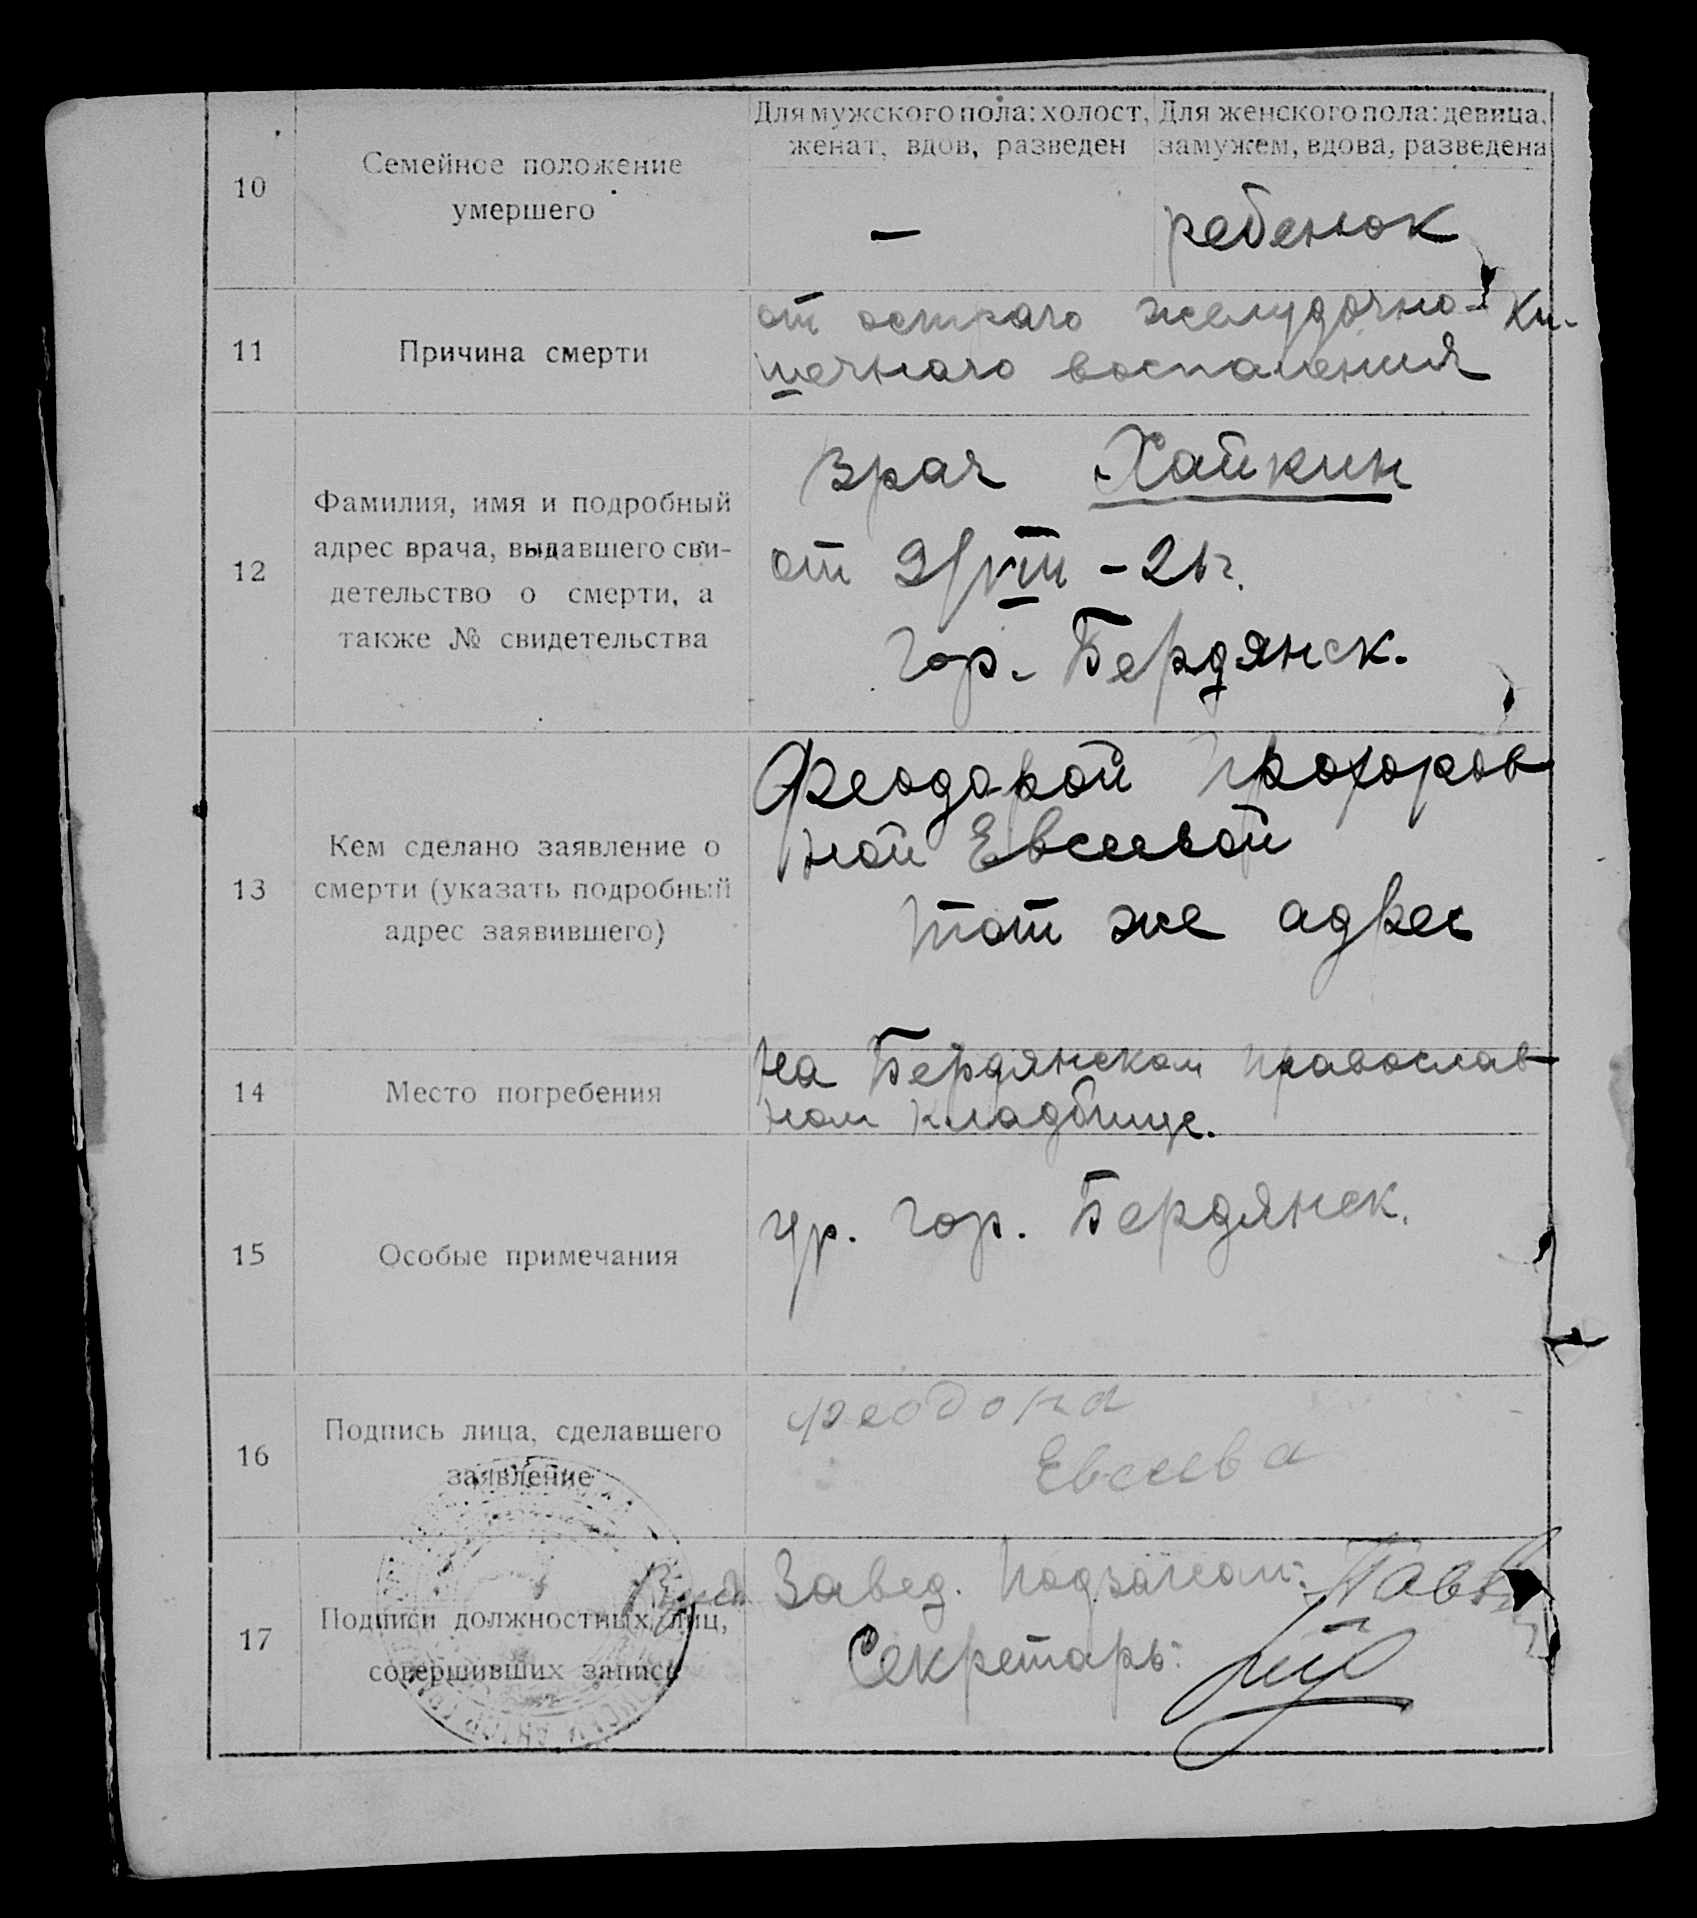 Для мужского пола: холост, женат, вдов, разведен
Для женского пола: девица, замужем, вдова, разведена
10
Семейное положение
умершего
–
ребенок
11
Причина смерти
от острого желудочно-ки-
шечного воспаления
12
Фамилия, имя и подробный
адрес врача, выдавшего сви-
детельство о смерти, а
также № свидетельства
врач Хайкин
от 2/VIII – 21г.
гор. Бердянск.
13
Кем сделано заявление о
смерти (указать подробный
адрес заявившего)
Феодорой Прохоров
ной Евсеевой
тот же адрес
14
Место погребения
На Бердянском православ-
ном кладбище.
15
Особые примечания
гр. гор. Бердянск.
16
Подпись лица, сделавшего
заявление
феодора
Евсеева
17
Подписи должностных лиц,
совершивших запись
Завед. Подзагсом:
Секретарь: